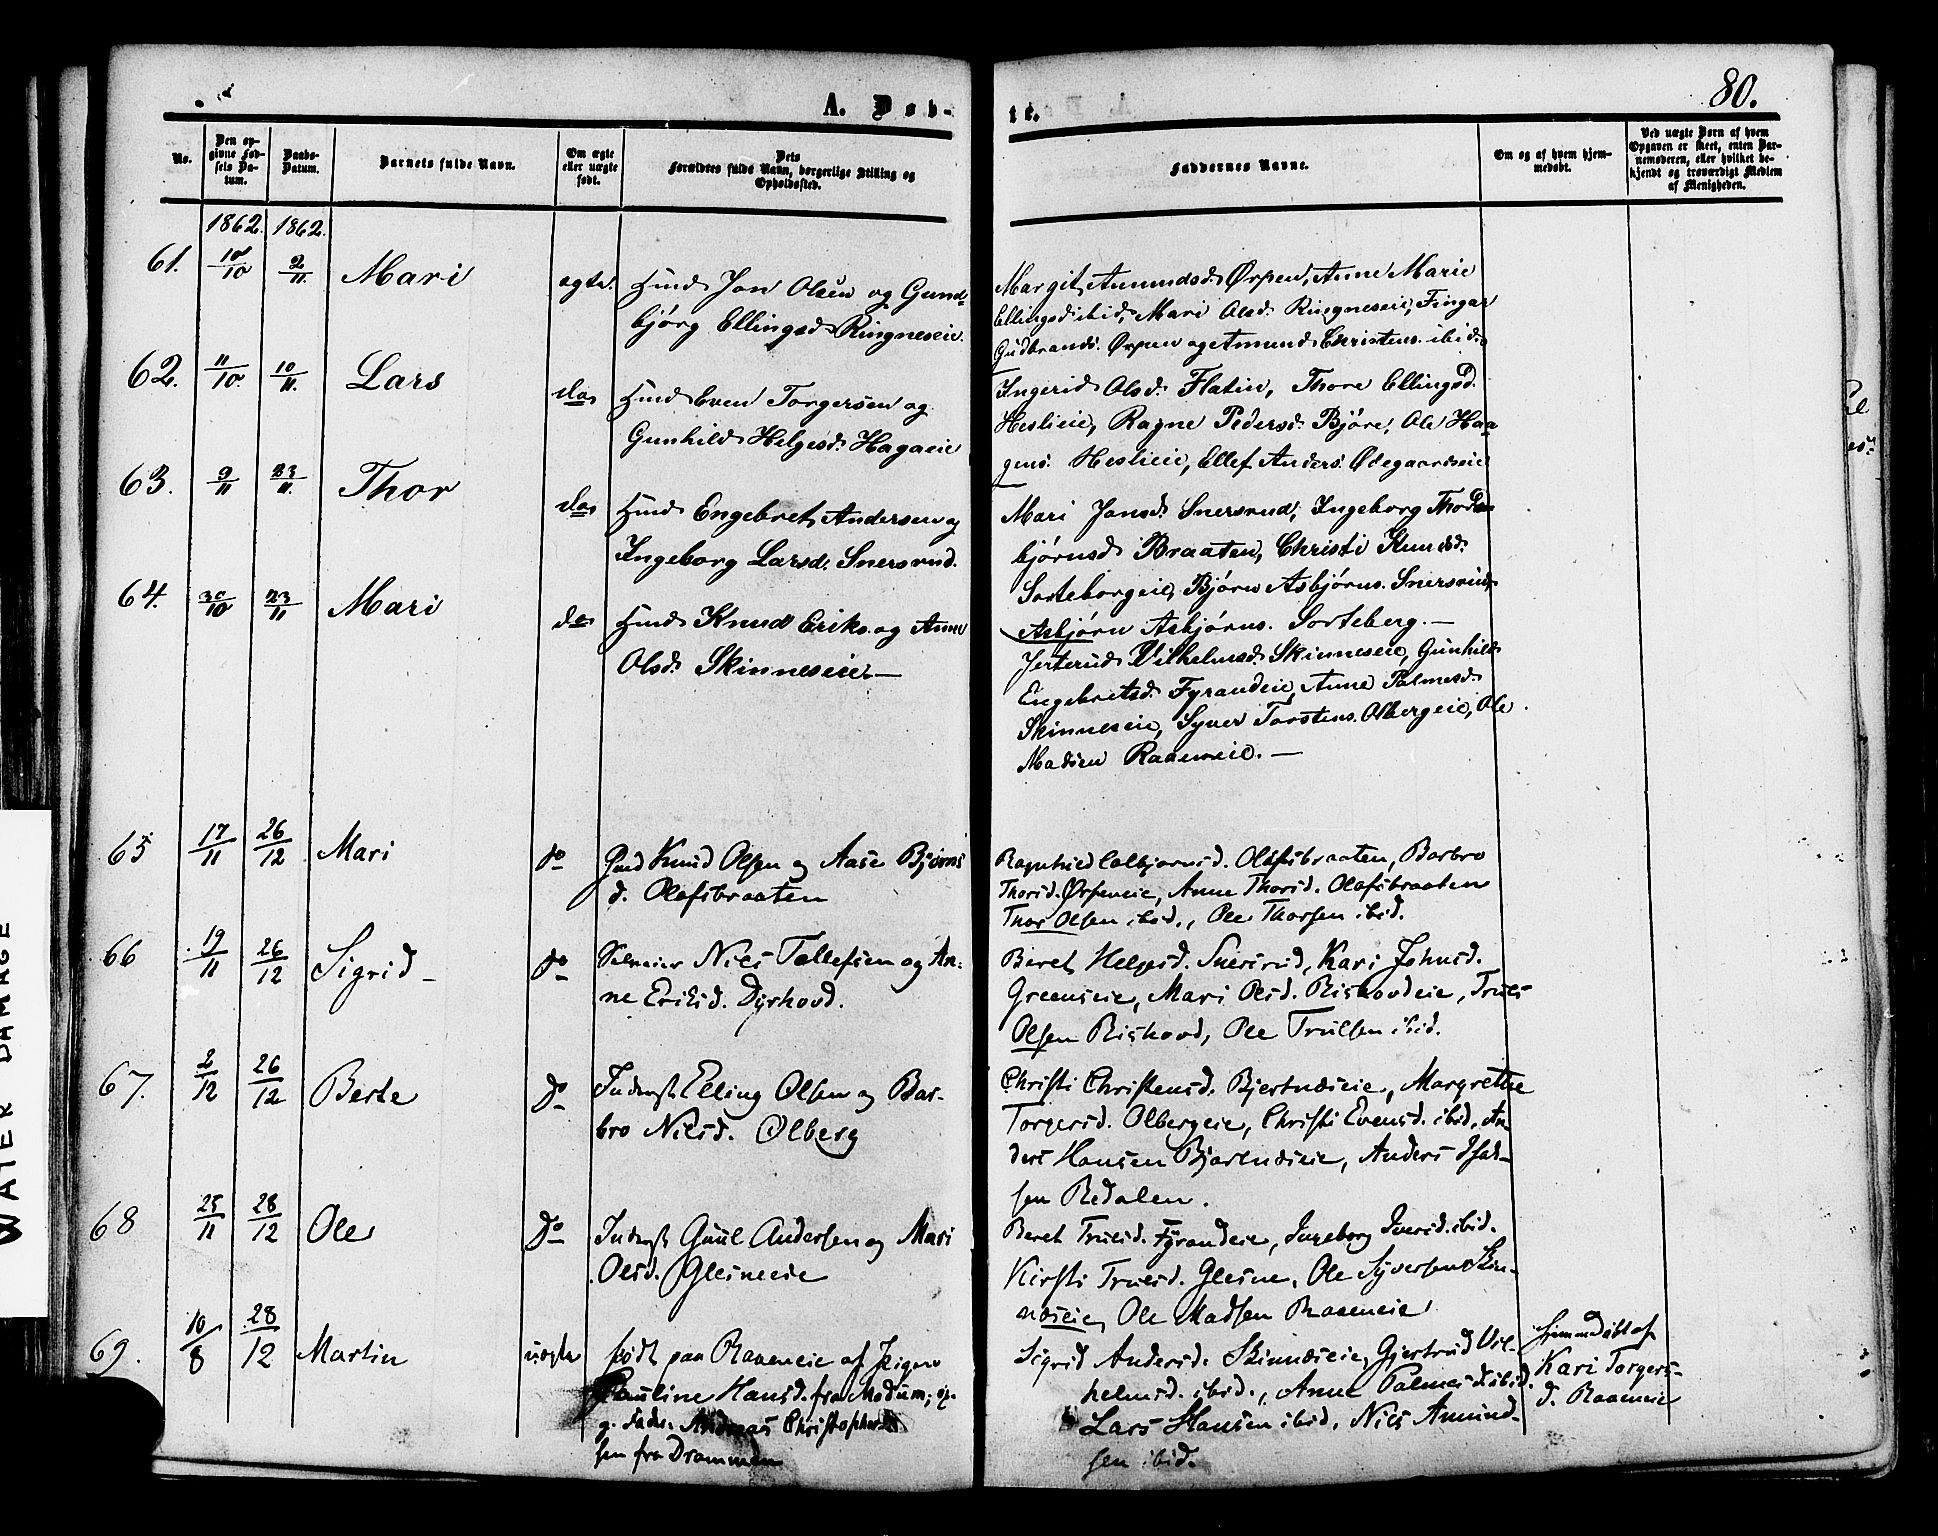 80.
A. Døb-
te.
No.
Den op-
givne Fød-
sels Da-
tum.
Daabs-
Datum.
Barnets fulde Navn.
Om ægte
eller uægte
født.
Dets
Forældres fulde Navn, borgerlige Stilling og
Opholdssted.
Faddernes Navne.
Om og af hvem hjem-
medøbt.
Ved uægte Børn af hvem
Opgaven er skeet, enten Bar-
nemoderen, eller hvilket be-
kjendt og troværdigt Medlem
af Menigheden.
1862. 1862.
61. 10/10 2/11. Mari ægte.
Huusm Jon Olsen og Gund-
bjørg Ellingsd. Ringneseie.
Margit Amundsd. Ørpen, Anne Marie
Ellingsd. ibid, Mari Olsd. Ringneseie, Fingar
Gudbrands. Ørpen og Amund Christens. ibid.
62. 11/10. 10/11. Lars do
Huusm Even Torgersen og
Gunhild Helgesd. Hagaeie
Ingerid Olsd. Flatin, Thore Ellingsd.
Heslieie, Ragne Pedersd. Bjøre, Ole Haa-
gens. Heslieie, Ellef Anders. Ødegaardseie
63. 9/11 23/11. Thor do
Huusm Engebret Andersen og
Ingeborg Larsd. Snersrud.
Mari Jonsd. Snersrud, Ingeborg
bjørnsd. Braaten, Christi Knudsd.
Sorteborgeie, Bjørn Asbjørns. Snersrud,
Asbjørn Asbjørns. Sorteberg.—
64. 30/10 23/11 Mari do
Huusm Knud Eriks. og Anne
Olsd. Skinneseie—
Jerterud Vilhelmsd. Skinneseie, Gunhild
Engebretsd. Fyrandeie, Anne Palmesd.
Skinneseie, Syver Torstens. Olbergeie, Ole
Madsen Raaeneie.—
65 17/11 26/12 Mari do
Gmd Knud Olsen og Aase Bjørns
d. Olafsbraaten
Ragnhild Colbjørnsd. Olafsbraaten, Barbro
Thorsd. Ørpeneie, Anne Thorsd. Olafsbraaten
Thor Olsen ibid., Ole Thorsen ibid.
66 19/11 26/12 Sigrid— do
Selveier Niels Tollefsen og An-
ne Eriksd. Dyrhovd.
Beret Helgesd. Snersrud, Kari Johnsd.
Greenseie, Mari Olsd. Rishovdeie, Truls
Olsen Rishovd, Ole Trulsen ibid.
67. 2/12 26/12 Berte do
Inderst Elling Olsen og Bar-
bro Nielsd. Olberg
Christi Christensd. Bjertnæseie, Margrethe
Torgersd. Olbergeie, Christi Evensd. ibid, An-
ders Hansen Bjertnæseie, Anders Isak-
sen Redalen.
68 25/11 28/12 Ole do
Inderst Guul Andersen og Mari
Olsd. Glesneeie
Beret Trulsd. Fyrandeie, Ingeborg Iversd. ibid.
Kirsti Trulsd. Glesne, Ole Syversen Skin-
næseie, Ole Madsen Raaeneie
69. 10/8 28/12 Martin uægte
født paa Raaeneie af Pigen
Pauline Hansd. fra Modum; op-
g. Fader Andreas Christopher-
sen fra Drammen
Sigrid Andersd. Skinnæseie, Gjertrud Vil-
helmsd. ibid., Anne Palmesd. ibid.
Lars Hansen ibid, Niels Amund-
sen ibid.
hjemmedøbt af
Kari Torgers-
d. Raaeneie
WATER DAMAGE